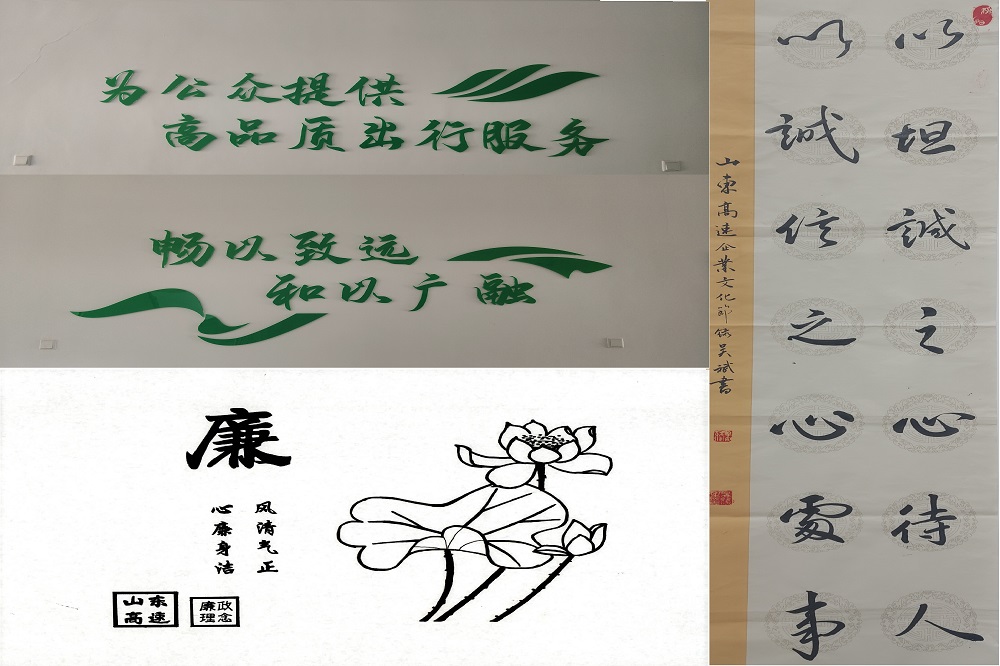 为公众提供
高品质出行服务
畅以致远
和以广融
廉
风清气正
心廉身洁
山东
高速
廉政
理念
以坦誠之心待人
以誠信之心處事
山東高速企業文化節錄吴斌書